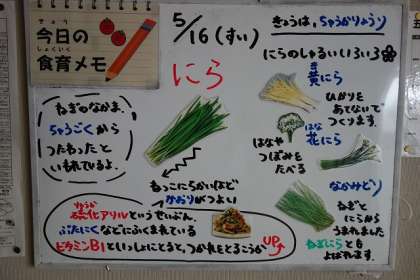 きょう
今日の
しょくいく
食育メモ
5/16(すい)
にら
ねぎのなかま。
ちゅうごくから
つたわったと
いわれているよ。
ねっこにちかいほど
かおりがつよい
りゅうか
硫化アリルというせいぶん。
ぶたにくなどにふくまれている
ビタミンB1といっしょにとると、つかれをとるこうか
UP
きょうは、ちゅうかりょうり
にらのしゅるいいろいろ
き
黄にら
ひかりを
あてないで
つくります。
はな
花にら
はなや
つぼみを
たべる
なかみどり
ねぎと
にらから
うまれました
ねぎにらとも
よばれます。